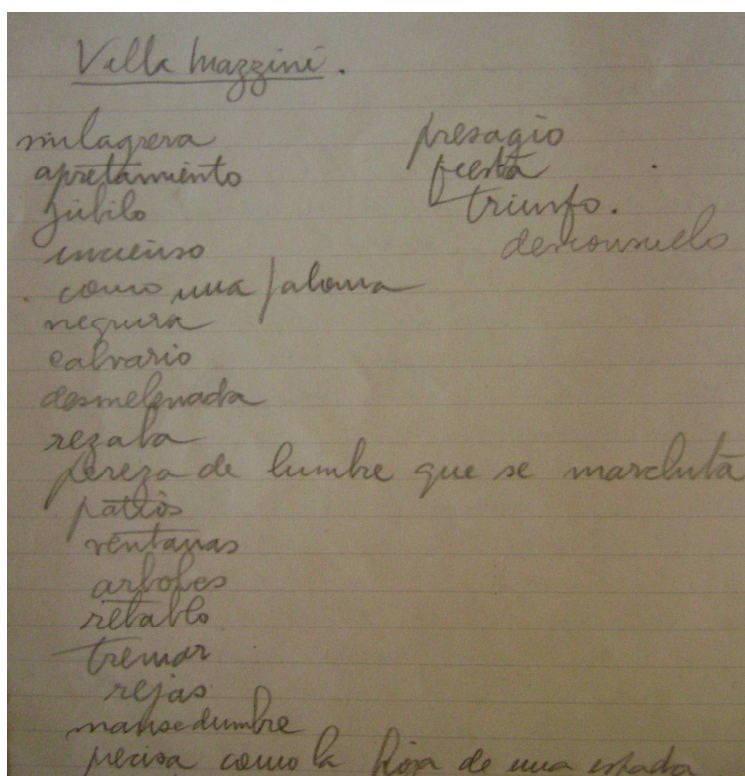 Villa Mazzini.
milagrera
apretamiento
júbilo
incienso
como una paloma
negrura
calvario
desmelenada
rezaba
pereza de lumbre que se marchita
patios
ventanas
arboles
retablo
tremar
rejas
mansedumbre
precisa como la hoja de una espada
presagio
fiesta
triunfo.
desconsuelo